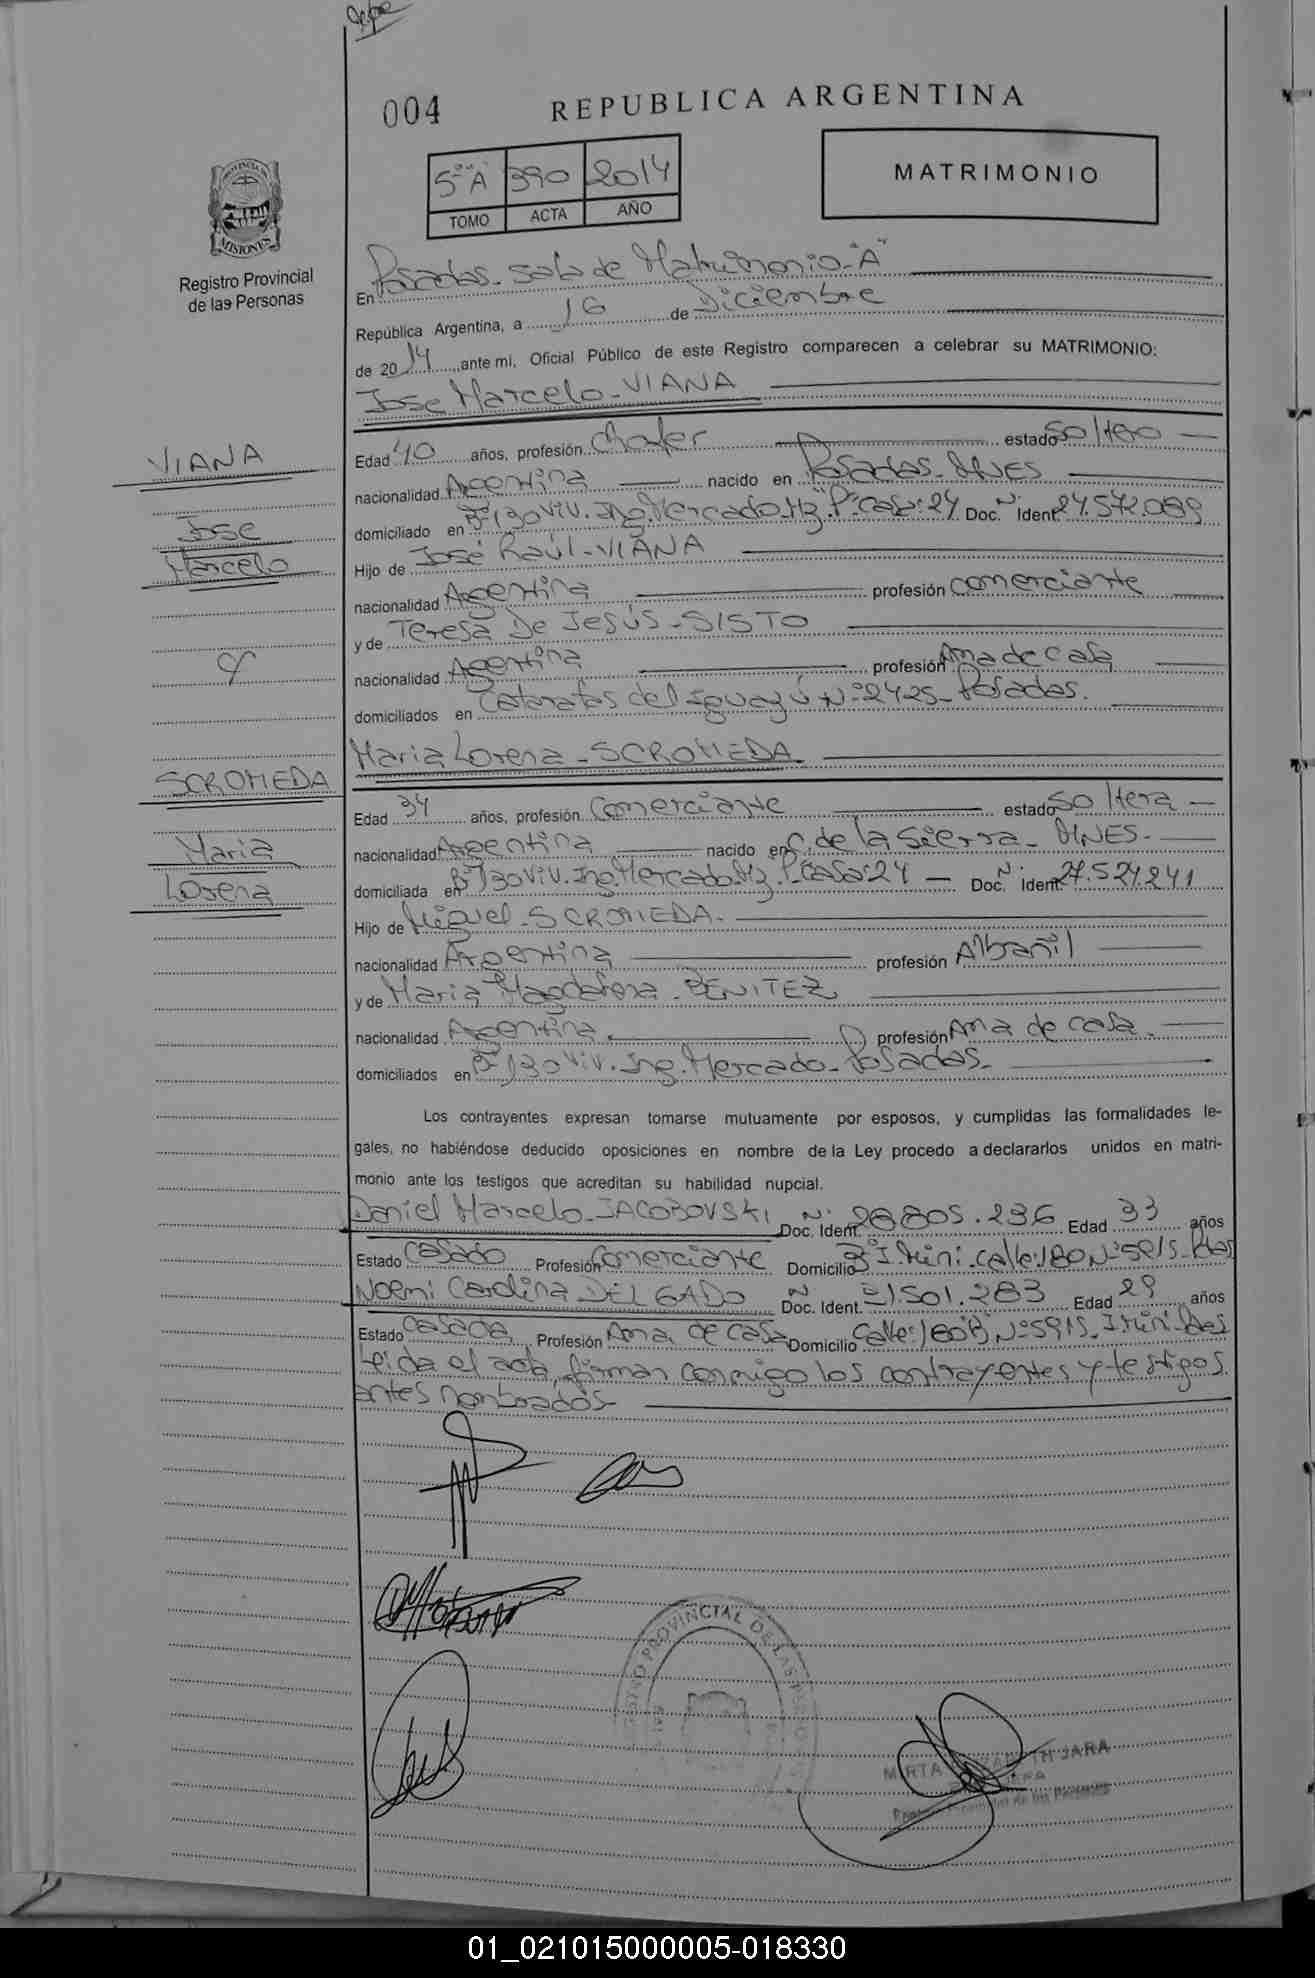 004
REPUBLICA ARGENTINA
5º "A" 390 2014
TOMO ACTA AÑO
MATRIMONIO
PROVINCIA DE
MISIONES
Registro Provincial
de las Personas
En Posadas - Sala de Matrimonio - "A"
República Argentina, a 16 de Diciembre
de 2014, ante mi, Oficial Público de este Registro comparecen a celebrar su MATRIMONIO:
Jose Marcelo - VIANA
VIANA
Jose
Marcelo
Edad 40 años, profesión Chofer estado Soltero
nacionalidad Argentina nacido en Posadas - MNES
domiciliado en Bº 130 Viv. Ing. Mercado. Mz. "P" casa: 24 Doc. Nº Ident. 24.572.089
Hijo de José Raúl - VIANA
nacionalidad Argentina profesión Comerciante
y de Teresa De Jesús - SISTO
nacionalidad Argentina profesión Ama de casa
domiciliados en Cataratas del Iguazú Nº 2425 - Posadas.
Maria Lorena - SCROMEDA
y
SCROMEDA
Maria
Lorena
Edad 34 años, profesión Comerciante estado Soltera
nacionalidad Argentina nacido en C. de la Sierra - MNES -
domiciliada en Bº 130 Viv. Ing. Mercado. Mz. P casa: 24 Doc. Nº Ident. 27.524241
Hijo de Miguel - SCROMEDA.
nacionalidad Argentina profesión Albañil
y de Maria Magdalena - BENITEZ
nacionalidad Argentina profesión Ama de casa.
domiciliados en Bº 130 Viv. Ing. Mercado - Posadas -
Los contrayentes expresan tomarse mutuamente por esposos, y cumplidas las formalidades le-
gales, no habiéndose deducido oposiciones en nombre de la Ley procedo a declararlos unidos en matri-
monio ante los testigos que acreditan su habilidad nupcial.
Daniel Marcelo - JACOBOVSKI Doc. Nº Ident. 28.805.236 Edad 33 años
Estado Casado Profesión Comerciante Domicilio Bº I. Mini. Calle: 180 Nº 5915 - Pdas
Noemi Carolina DELGADO Doc. Nº Ident. 31501.283 Edad 29 años
Estado Casada Profesión Ama de casa Domicilio Calle: 180 Bº Nº 5915 - I. Mini. Pdas
Leida el acta, firman conmigo los contrayentes y testigos
antes nombrados -
REGISTRO PROVINCIAL DE LAS PERSONAS
MIRTA ELIZABETH JARA
JEFA
Registro Provincial de las Personas
01_021015000005-018330